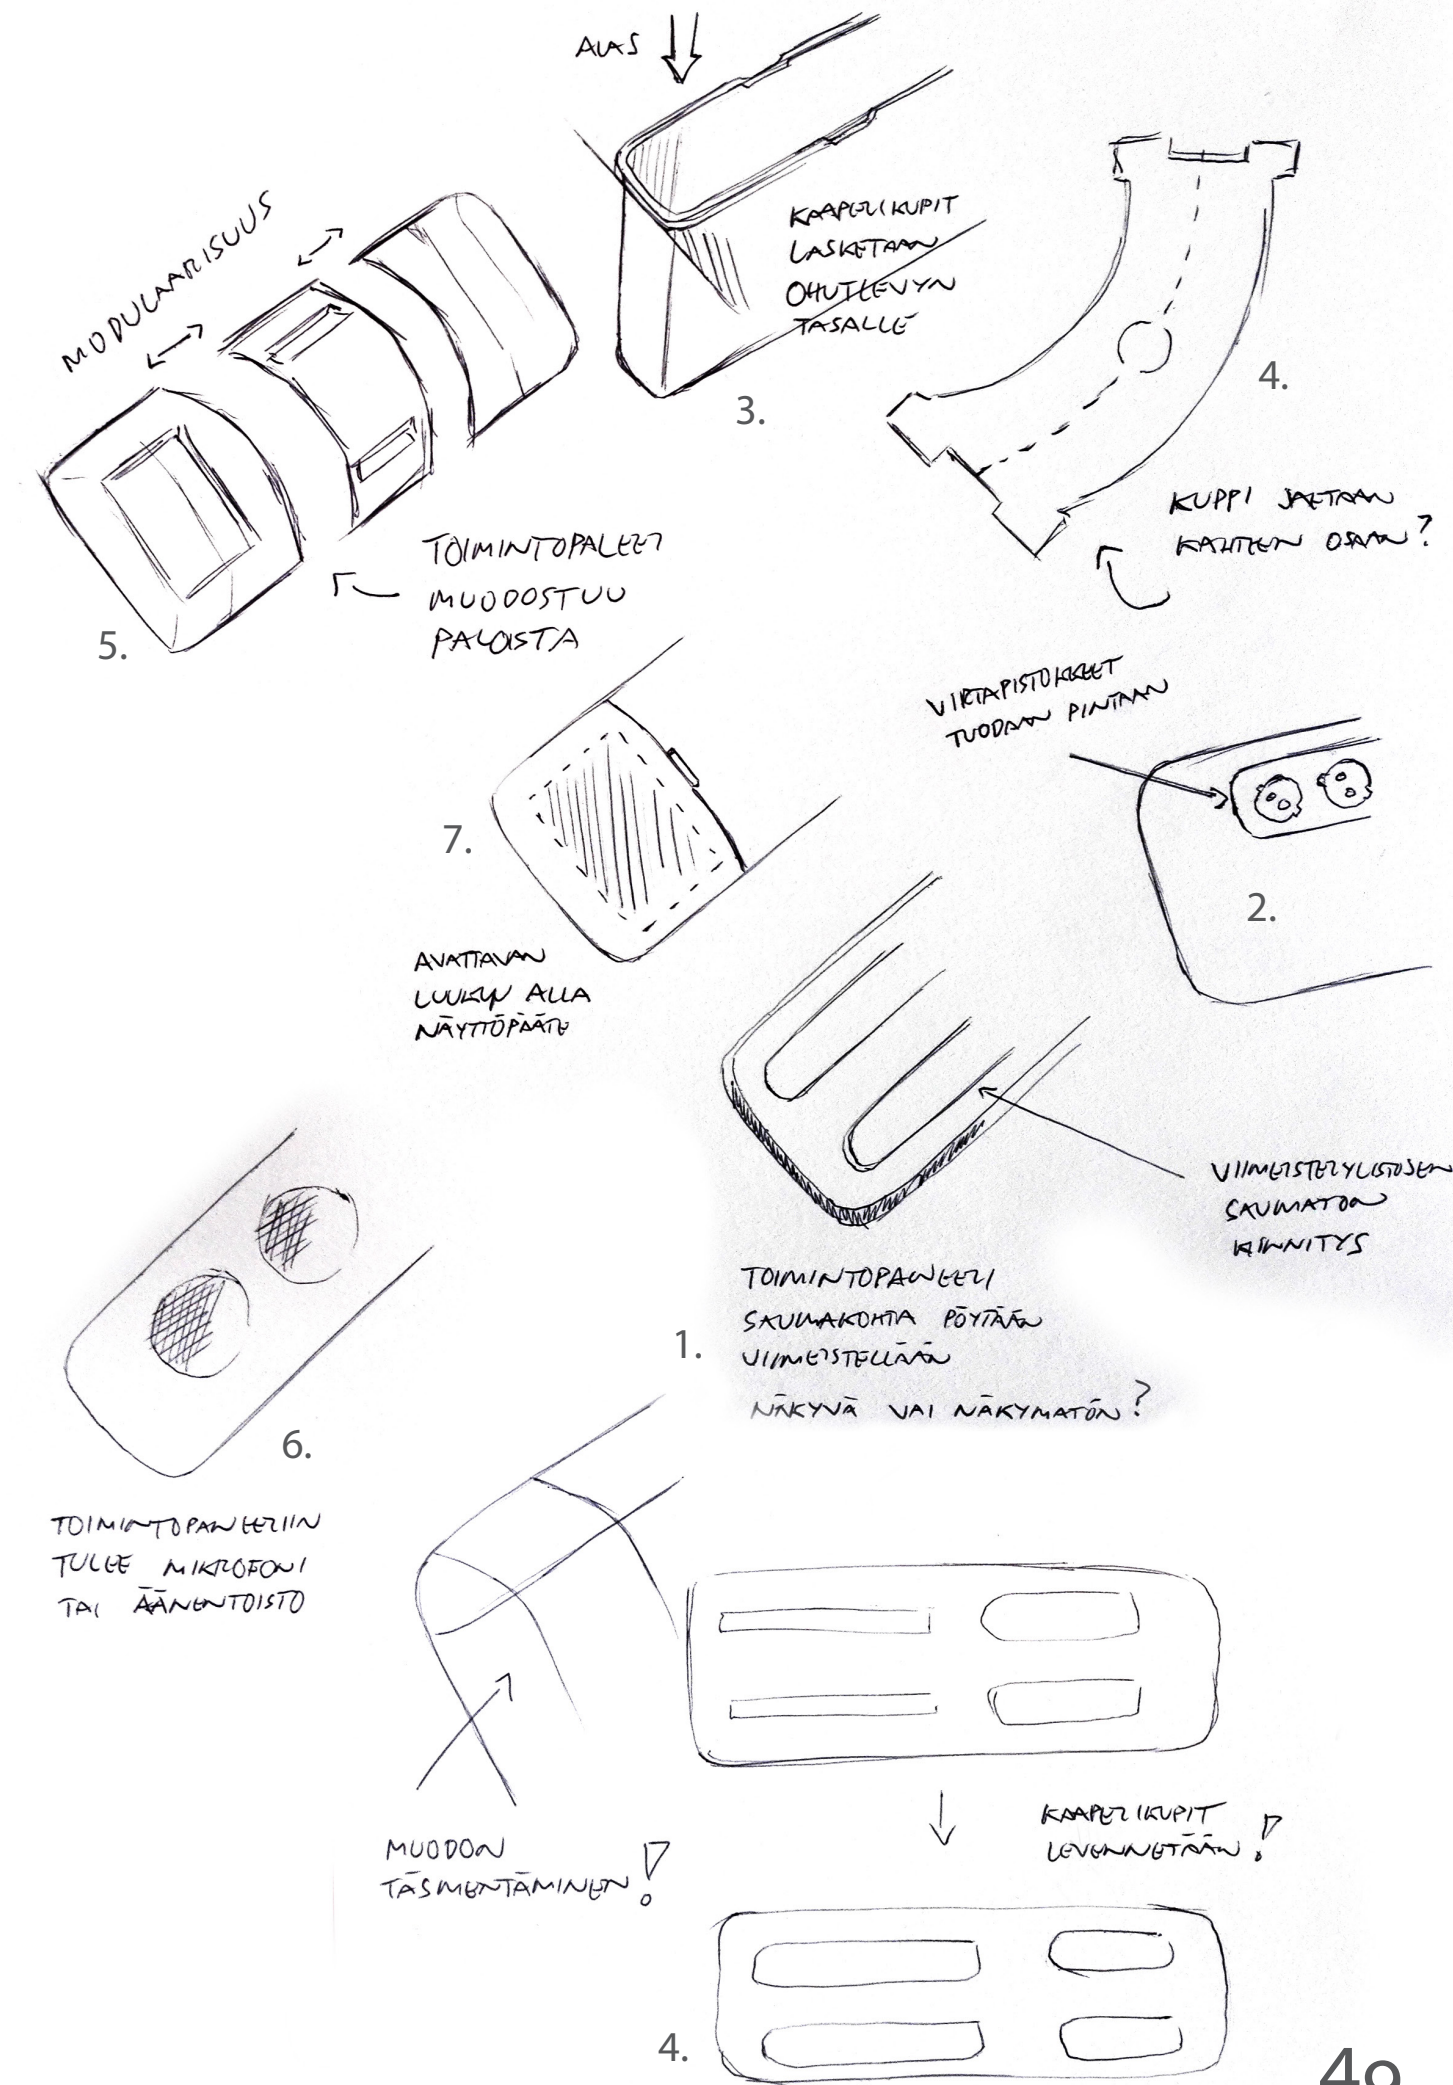 ALAS
KAAPELIKUPIT
LASKETAAN
OHUTLEVYN
TASALLE
3.
MODULAARISUUS
TOIMINTOPALEET
MUODOSTUU
PALOISTA
5.
4.
KUPPI JAETAAN
KAHTEEN OSAAN?
VIRTAPISTOKKEET
TUODAAN PINTAAN
2.
7.
AVATTAVAN
LUUKUN ALLA
NÄYTTÖPÄÄTE
VIIMEISTELYLISTOSEN
SAUMATON
KIINNITYS
TOIMINTOPANEELI
SAUMAKOHTA PÖYTÄÄN
VIIMEISTELLÄÄN
NÄKYVÄ VAI NÄKYMATÖN?
1.
6.
TOIMINTOPANEELIIN
TULEE MIKROFONI
TAI ÄÄNENTOISTO
MUODON
TÄSMENTÄMINEN!
KAAPELIKUPIT
LEVENNETÄÄN!
4.
49